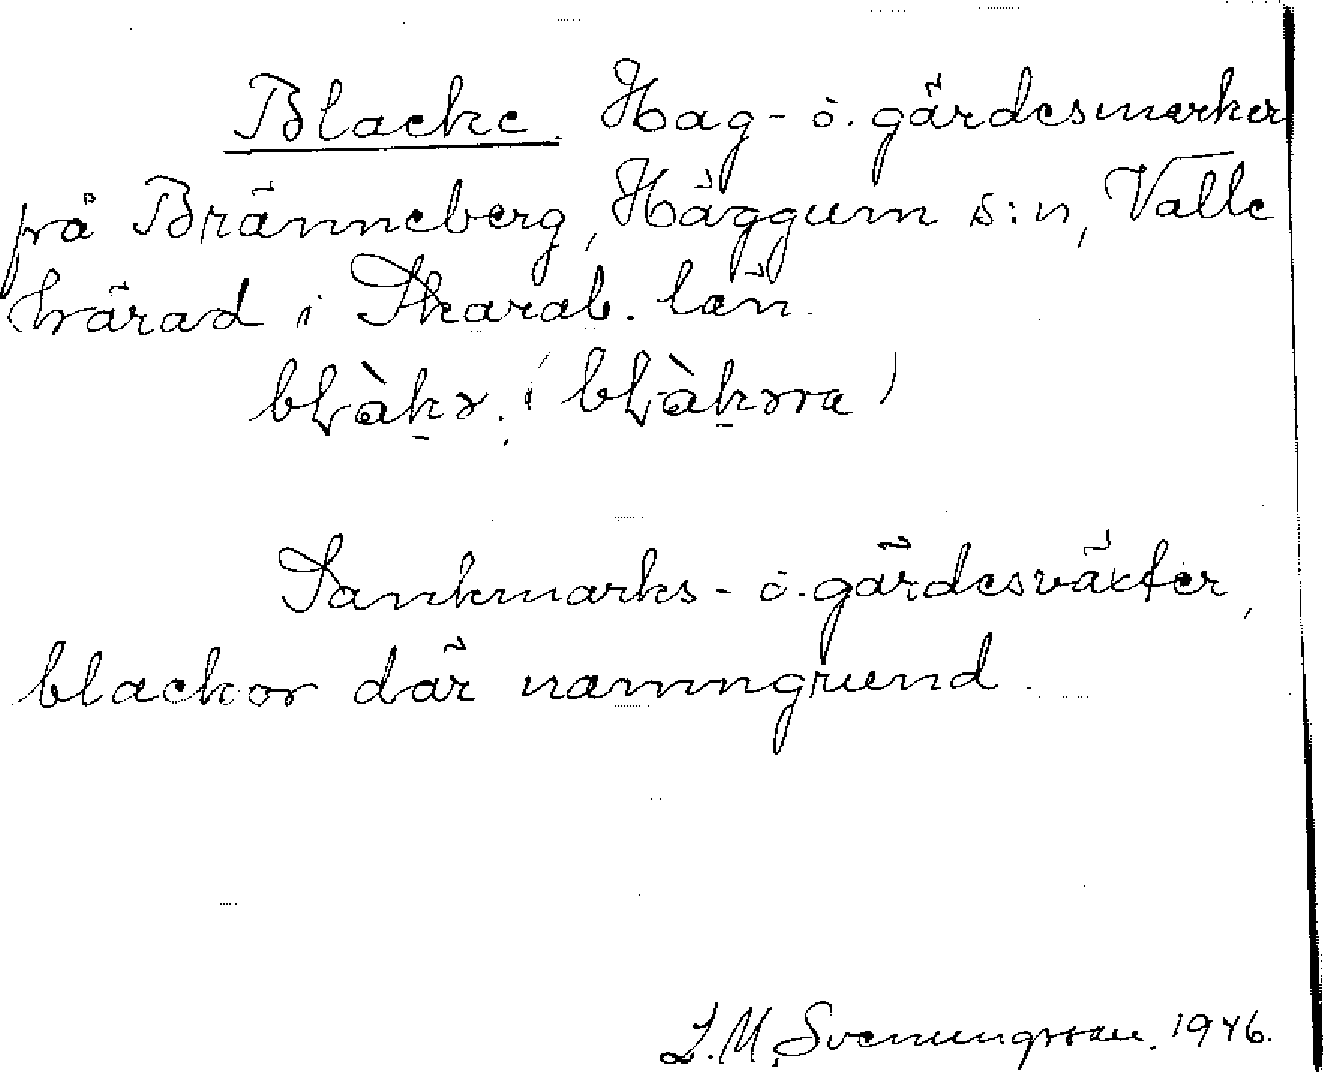 Blacke. Hag- o. gärdesmarker
på Bränneberg, Häggum s:n, Valle
härad i Skarab. län.
Sankmarks- o. gärdesväxter,
blackor där namngrund.
L. M. Svenungsson. 1946.